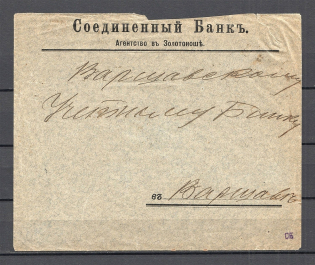 Соединенный Банкъ.
Агентство въ Золотоношѣ.
Варшавскому
Учетному Банку
въ Варшавѣ